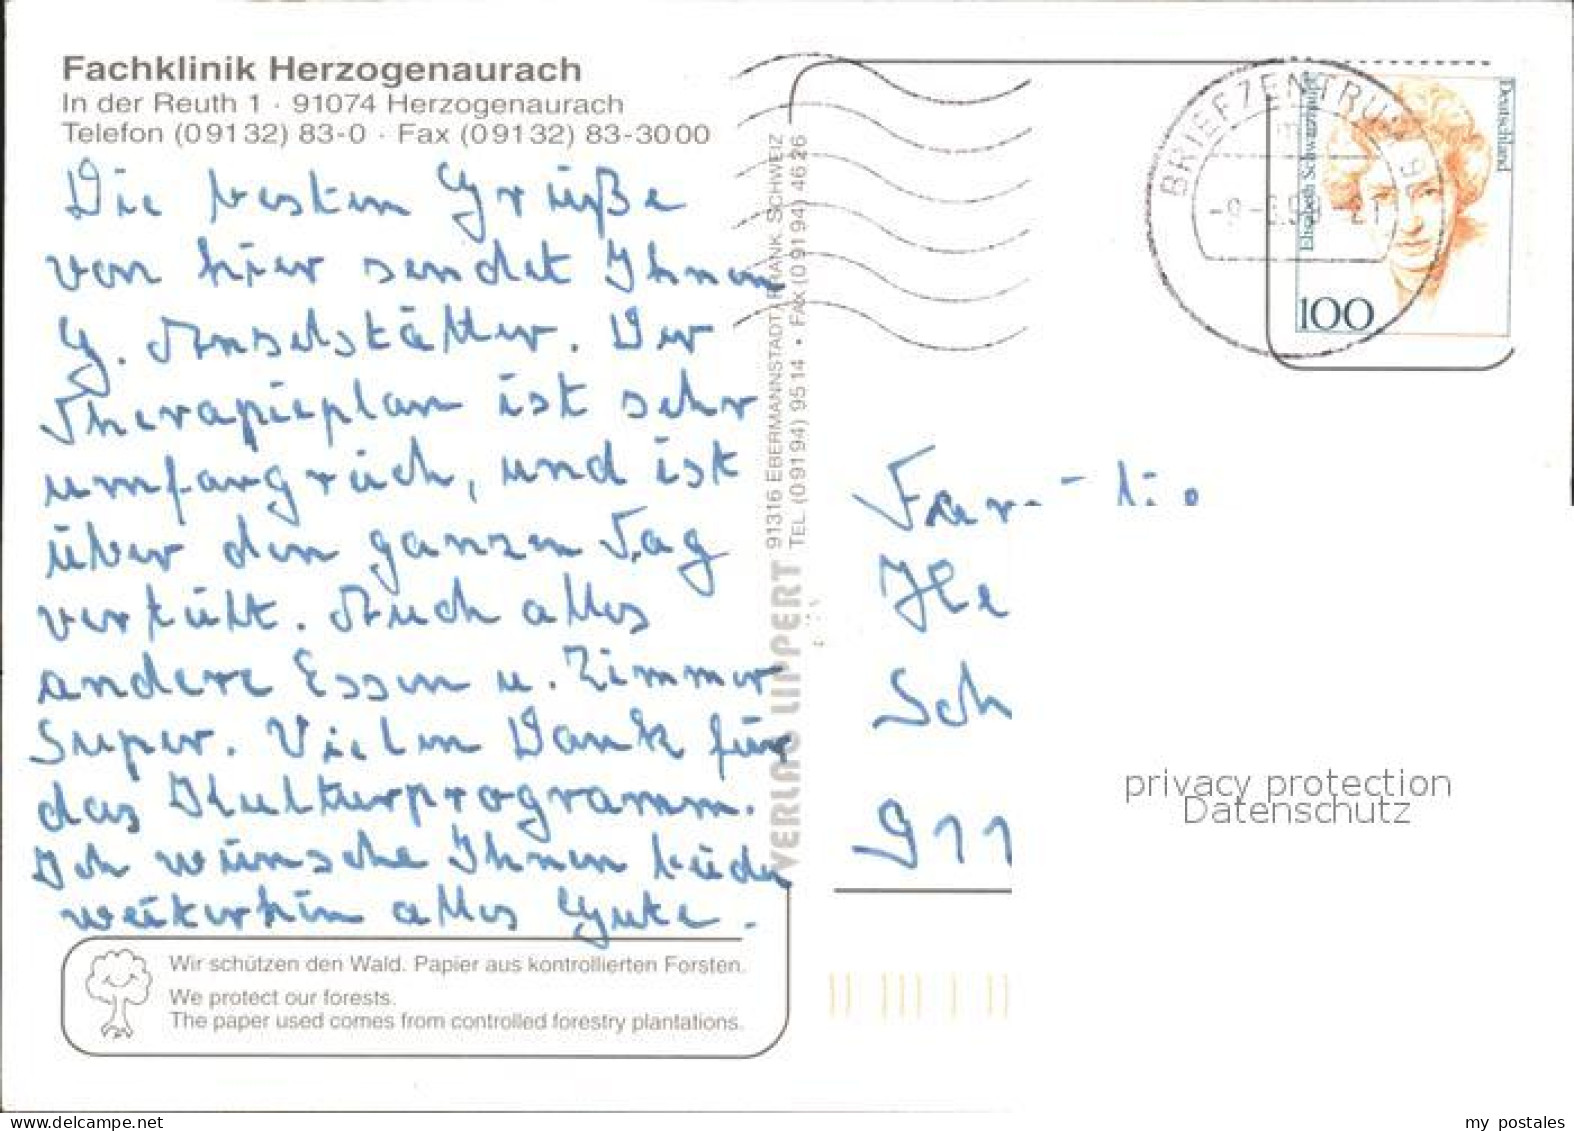 Fachklinik Herzogenaurach
In der Reuth 1 · 91074 Herzogenaurach
Telefon (09132) 83-0 · Fax (09132) 83-3000
Die besten Grüße
von hier sendet Ihnen
G. Anselstätter. Der
Therapieplan ist sehr
umfangreich, und ist
über den ganzen Tag
verteilt. Auch alles
andere Essen u. Zimmer
Super. Vielen Dank für
das Kulturprogramm.
Ich wünsche Ihnen beiden
weiterhin alles Gute.
Wir schützen den Wald. Papier aus kontrollierten Forsten.
We protect our forests.
The paper used comes from controlled forestry plantations.
VERLAG LIPPERT 91316 EBERMANNSTADT / FRÄNK. SCHWEIZ
TEL. (09194) 9514 • FAX (09194) 4626
BRIEFZENTRUM 91
Deutschland
Elisabeth Schwarzhaupt
100
Familie
He
Sch
911
privacy protection
Datenschutz
delcampe.net
my_postales